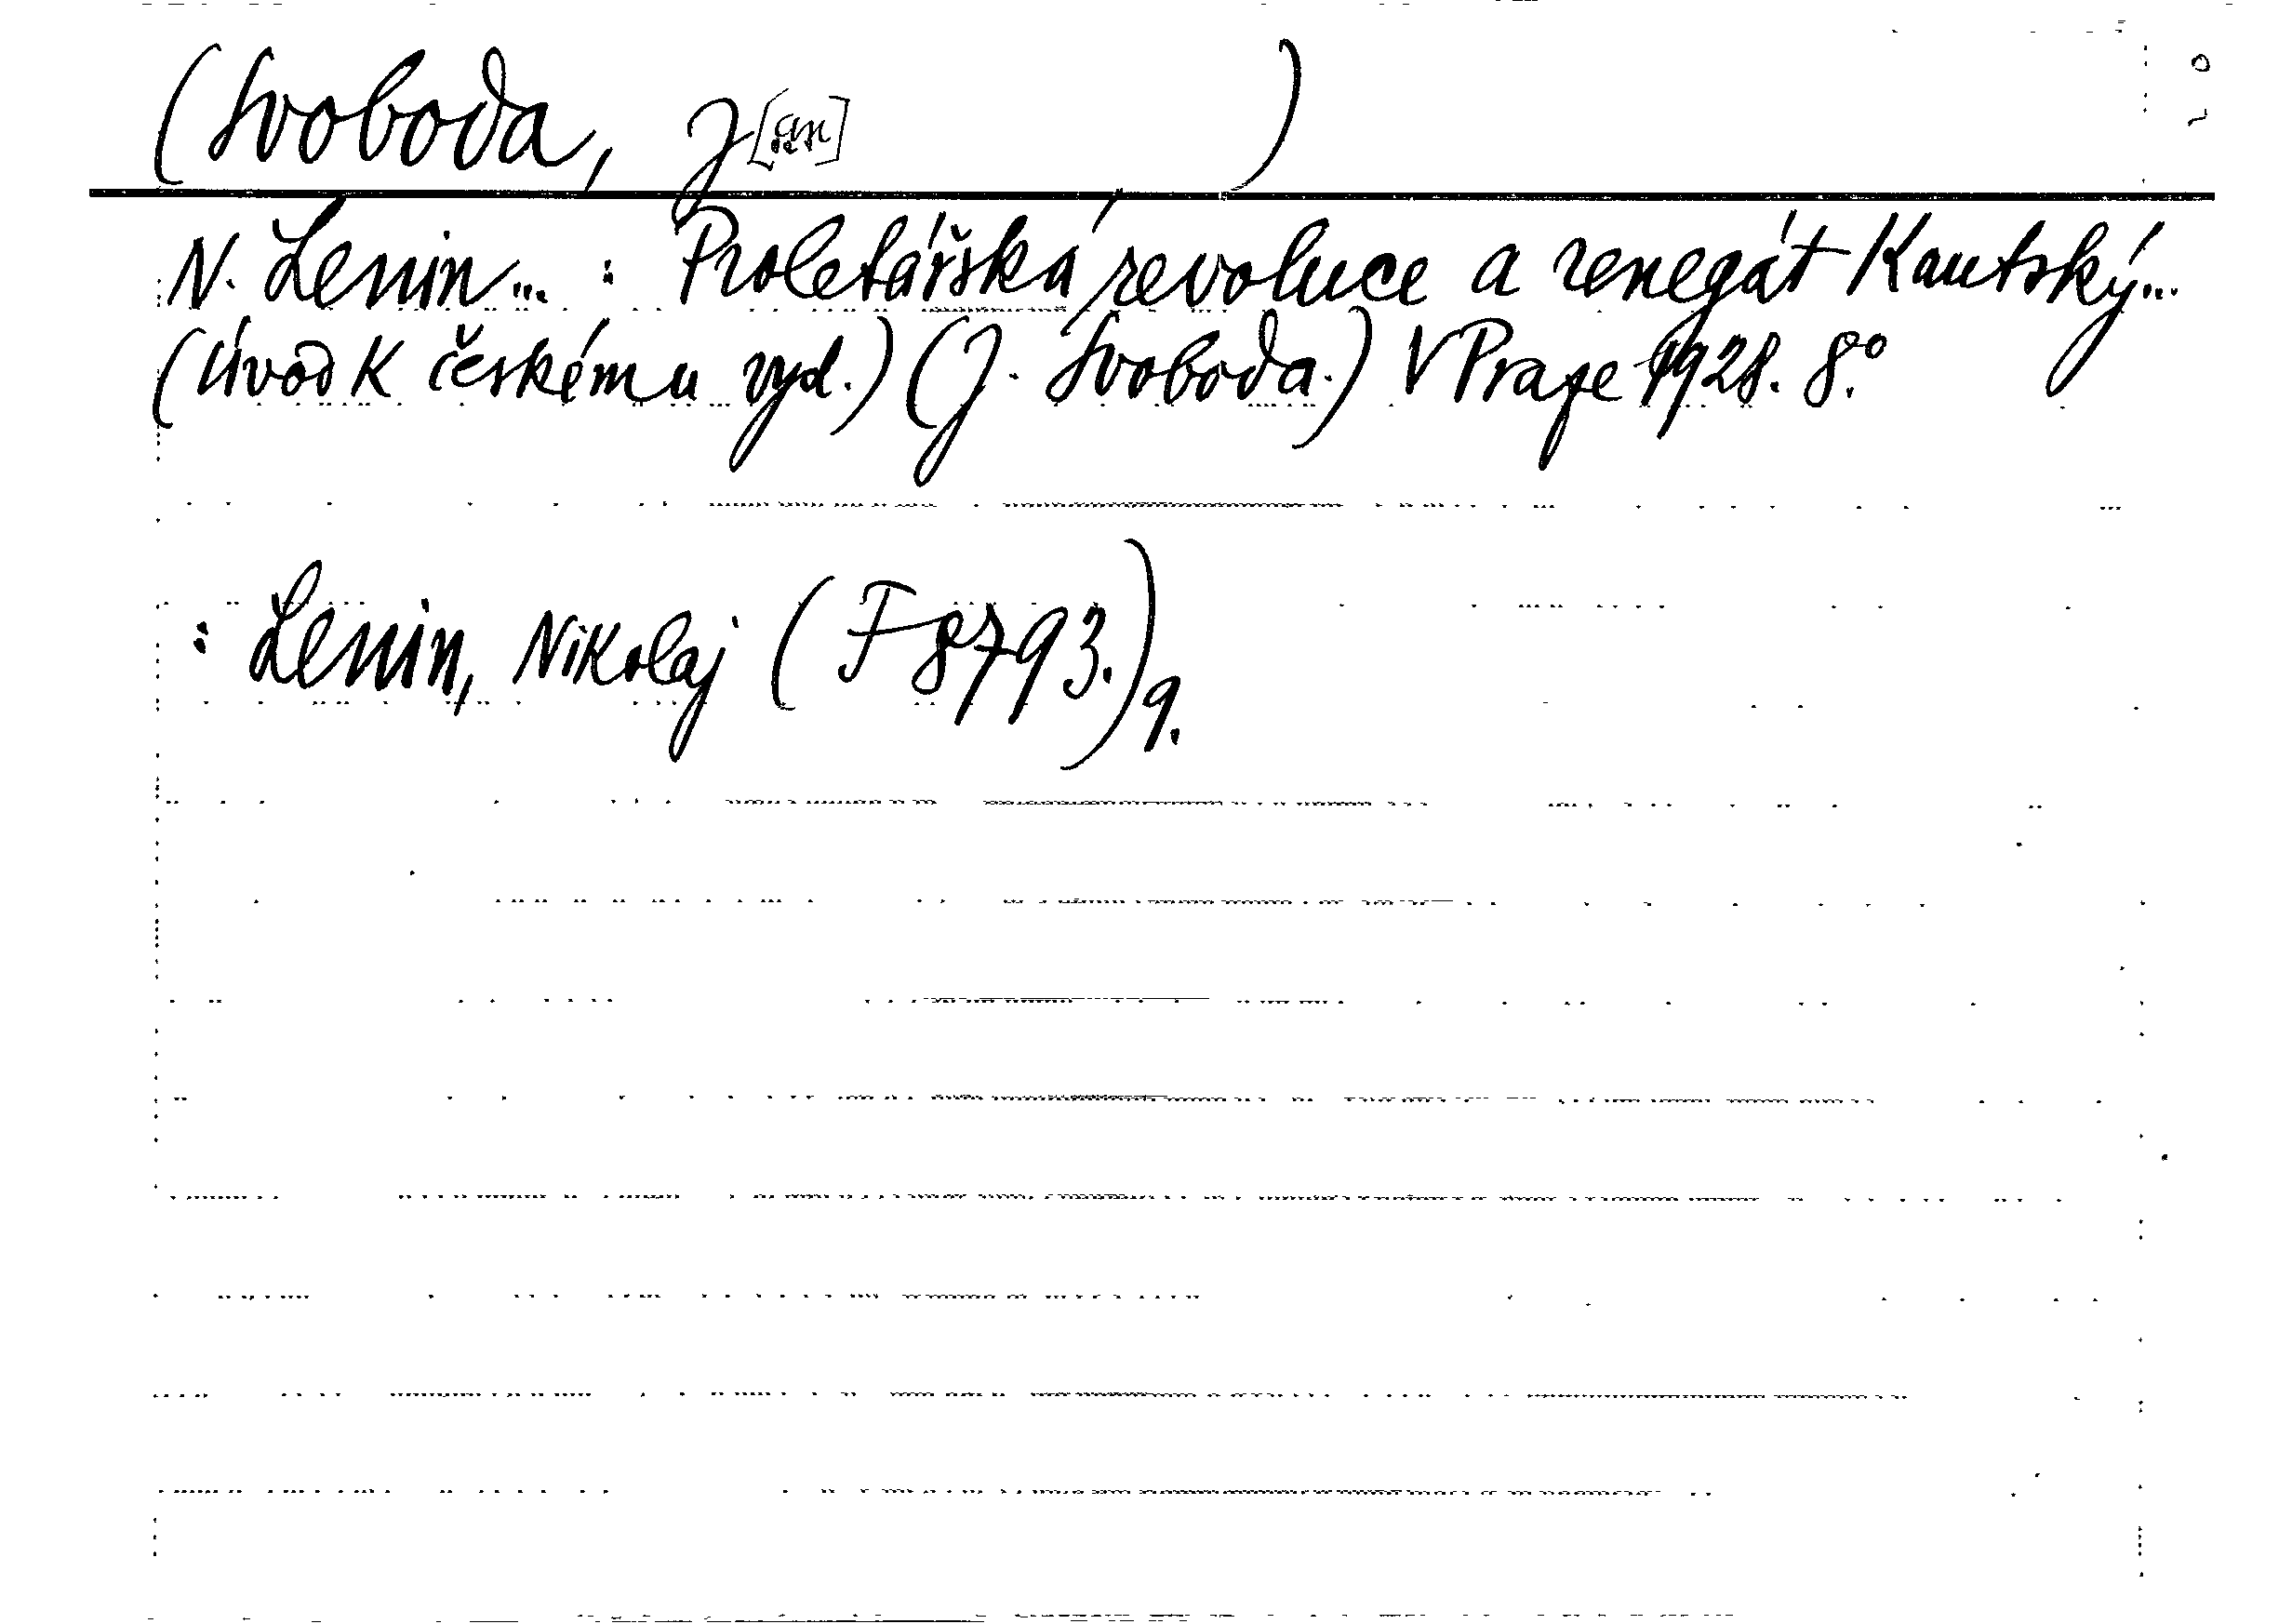 (Svoboda, J[an] )
N. Lenin... : Proletářská revoluce a renegát Kautský...
(Úvod k českému vyd.) (J. Svoboda.) V Praze 1928. 8.°
: Lenin, Nikolaj (F 8793.)9.